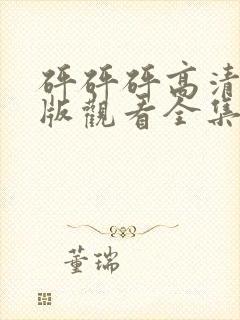 砰砰砰高清
版觀看全集
董瑞